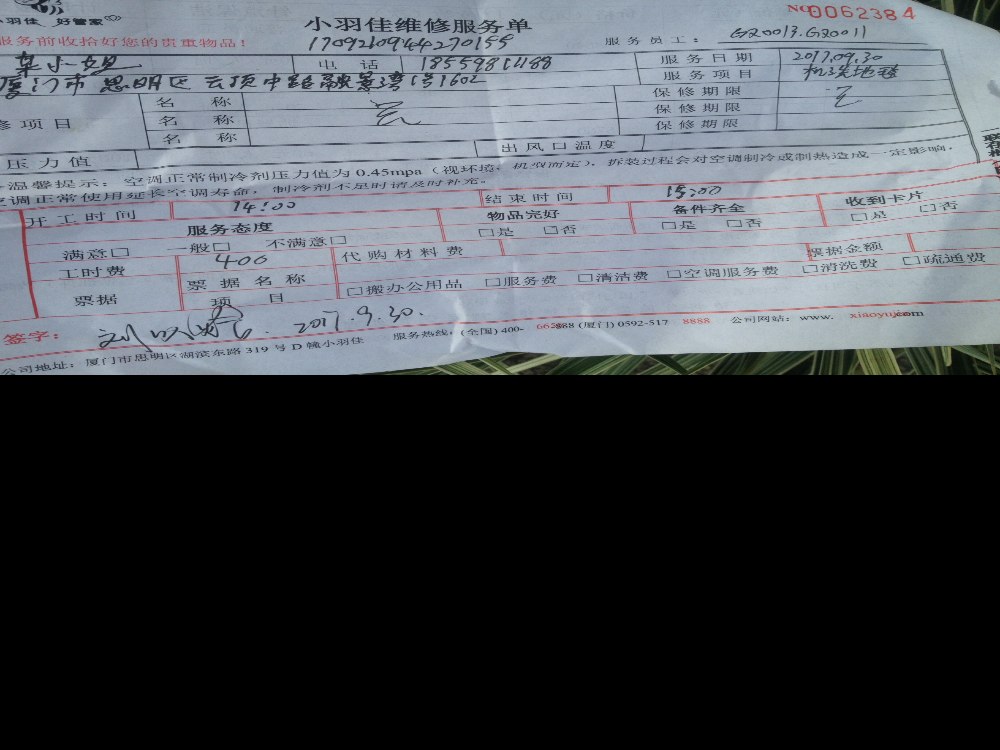 小羽佳 好管家
小羽佳维修服务单
No 0062384
服务前收拾好您的贵重物品！
1709210944270155
服务员工： G20013.G20011
小姐
电 话
18559811188
服务日期
2017.09.30
厦门市思明区云顶中路融景湾1号1602
服务项目
机洗地毯
修项目
名 称
无
保修期限
无
名 称
保修期限
名 称
保修期限
压力值
出风口温度
温馨提示：空调正常制冷剂压力值为 0.45mpa（视环境，机型而定），拆装过程会对空调制冷或制热造成一定影响，
空调正常使用延长空调寿命，制冷剂不足时请及时补充。
开工时间
14:00
结束时间
15:00
服务态度
物品完好
备件齐全
收到卡片
满意□ 一般□ 不满意□
□是 □否
□是 □否
□是 □否
工时费
400
代购材料费
票据金额
票据
票据名称
项 目
□搬办公用品 □服务费 □清洁费 □空调服务费 □清洗费 □疏通费
签字：
2017.9.30.
公司地址：厦门市思明区湖滨东路 319 号 D 幢小羽佳 服务热线：(全国) 400-662888 (厦门) 0592-517 8888 公司网站：www. xiaoyujia.com